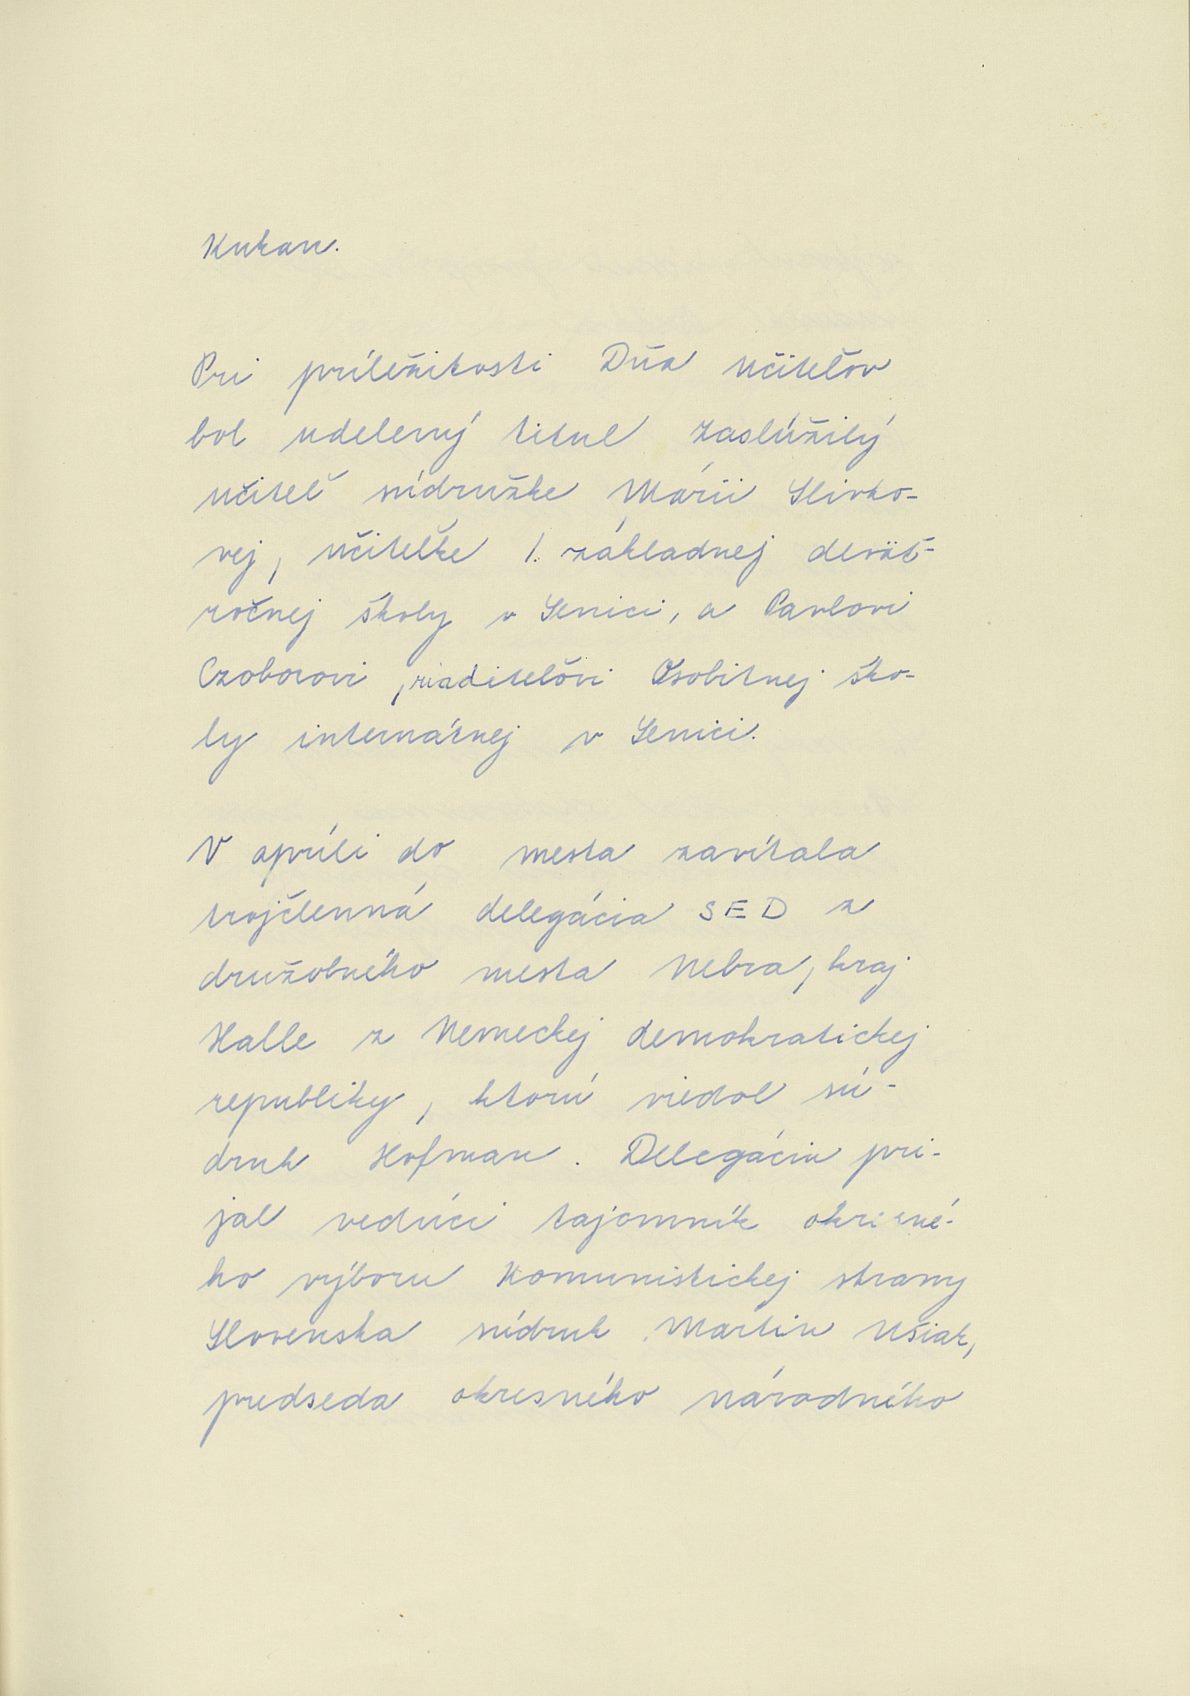 Kukan.
Pri príležitosti Dňa učiteľov
bol udelený titul zaslúžilý
učiteľ súdružke Márii Slivko-
vej, učiteľke 1. základnej deväť-
ročnej školy v Senici, a Pavlovi
Czoborovi, riaditeľovi Osobitnej ško-
ly internátnej v Senici.
V apríli do mesta zavítala
trojčlenná delegácia SED z
družobného mesta Nebra, kraj
Halle z Nemeckej demokratickej
republiky, ktorú viedol sú-
druh Hofman. Delegáciu pri-
jal vedúci tajomník okresné-
ho výboru Komunistickej strany
Slovenska súdruh Martin Ušiak,
predseda okresného národného